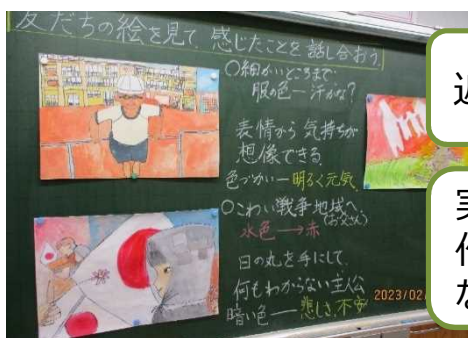 友だちの絵を見て、感じたことを話し合おう
○細かいところまで
服の色ー汗かな?
表情から気持ちが
想像できる
色づかいー明るく元気
○こわい戦争地域へ
(お父さん)
水色→赤
日の丸を手にして、
何もわからない主人公
暗い色ー悲しさ、不安
2023/02